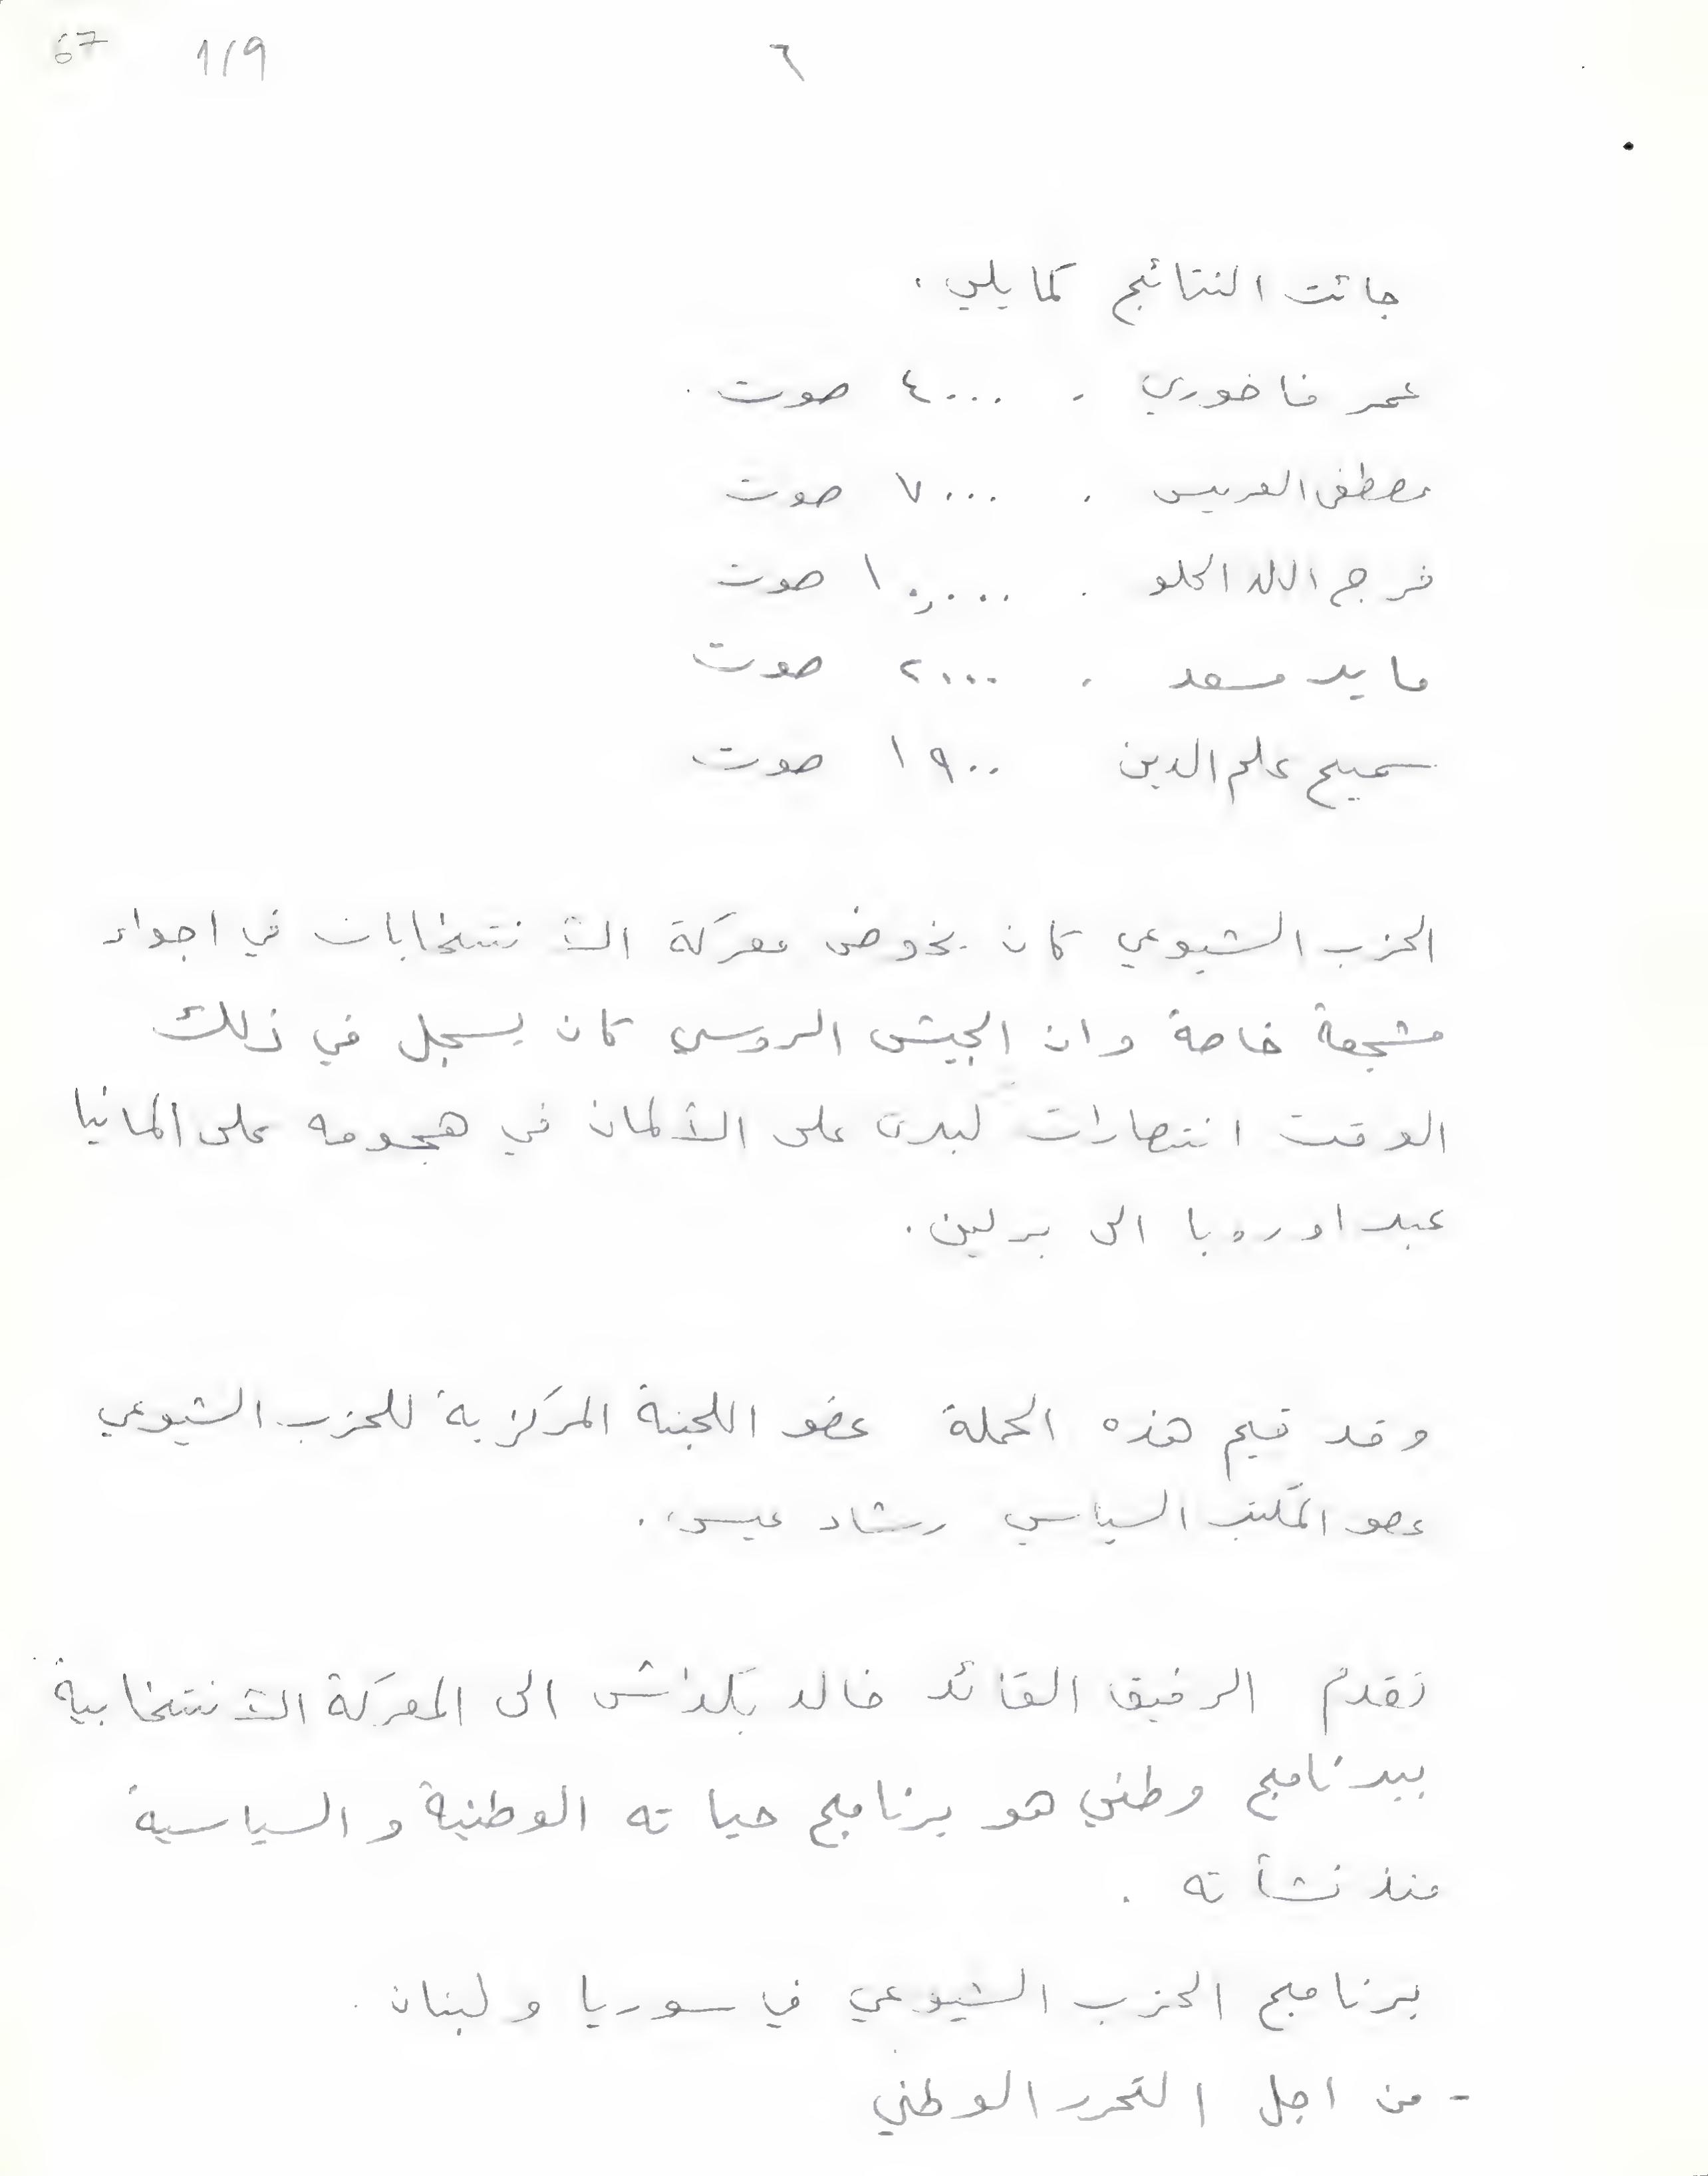 67 1/9 ٦
جائت النتائج كما يلي .
عمر فاخوري . ٤٠٠٠ صوت .
مصطفى العريس . ٧٠٠٠ صوت
فرج الله الحلو . ١٠,٠٠٠ صوت
مايد مسعد . ٢٠٠٠ صوت
سميح علم الدين ١٩٠٠ صوت
الحزب الشيوعي كان يخوض معركة الانتخابات في اجواء
مشجعة خاصة وان الجيش الروسي كان يسجل في ذلك
الوقت انتصارات كبرى على الألمان في هجومه على المانيا
عبر اوروبا الى برلين .
وقد قيم هذه الحملة عضو اللجنة المركزية للحزب الشيوعي
عضو المكتب السياسي رشاد عيسى .
تقدم الرفيق القائد خالد بكداش الى المعركة الانتخابية
ببرنامج وطني هو برنامج حياته الوطنية والسياسية
منذ نشأته .
برنامج الحزب الشيوعي في سوريا ولبنان .
- من اجل التحرر الوطني